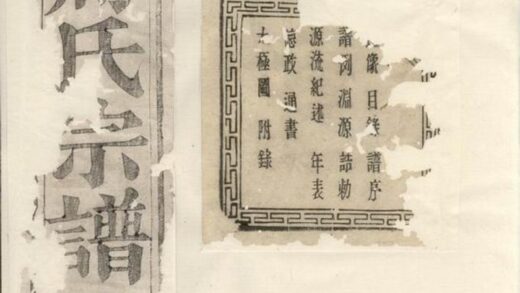 像 目錄 譜序
譜 淵源 誥勅
源流紀述 年表
政 通書
太極圖 附錄
氏宗譜